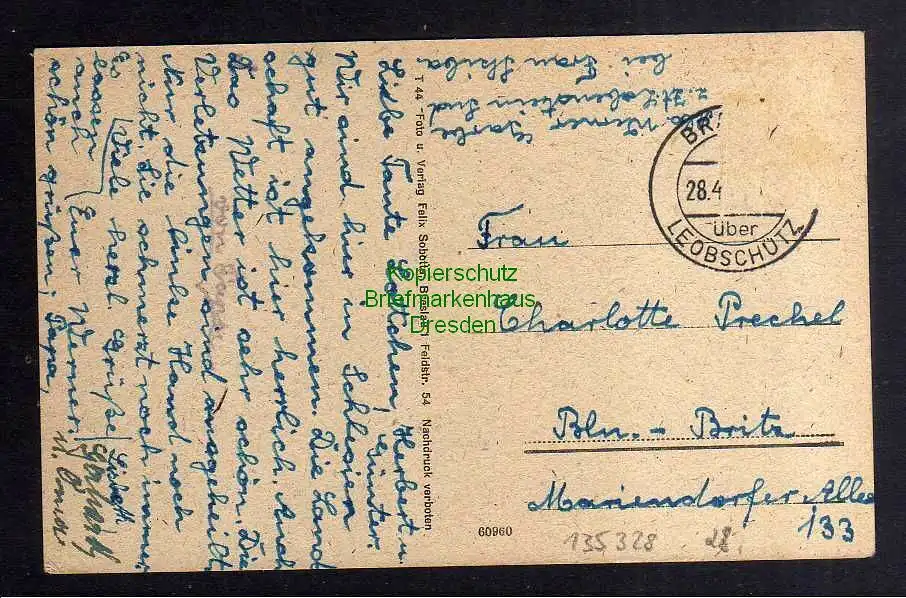 Liebe Tante Lottchen, Herbert u.
Günter.
Wir sind hier in Schlesien
gut angekommen. Die Land
schaft ist hier herrlich. Auch
Das Wetter ist sehr schön. Die
Verletzungen sind angeheilt,
Nur die linke Hand noch
nicht. Sie schmerzt noch immer.
Es
lassen
auch
schön grüßen, Papa,
u. Oma.
Viele herzl. Grüße
Euer Werner.
T 44 Foto u. Verlag Felix Breslau 1 Feldstr. 54 Nachdruck verboten
Werner
bei Frau
28.4
über
LEOBSCHÜTZ
Frau
Charlotte Prechel
Bln. - Britz
Mariendorfer Allee
133
60960
135328
Kopierschutz
Briefmarkenhaus
Dresden